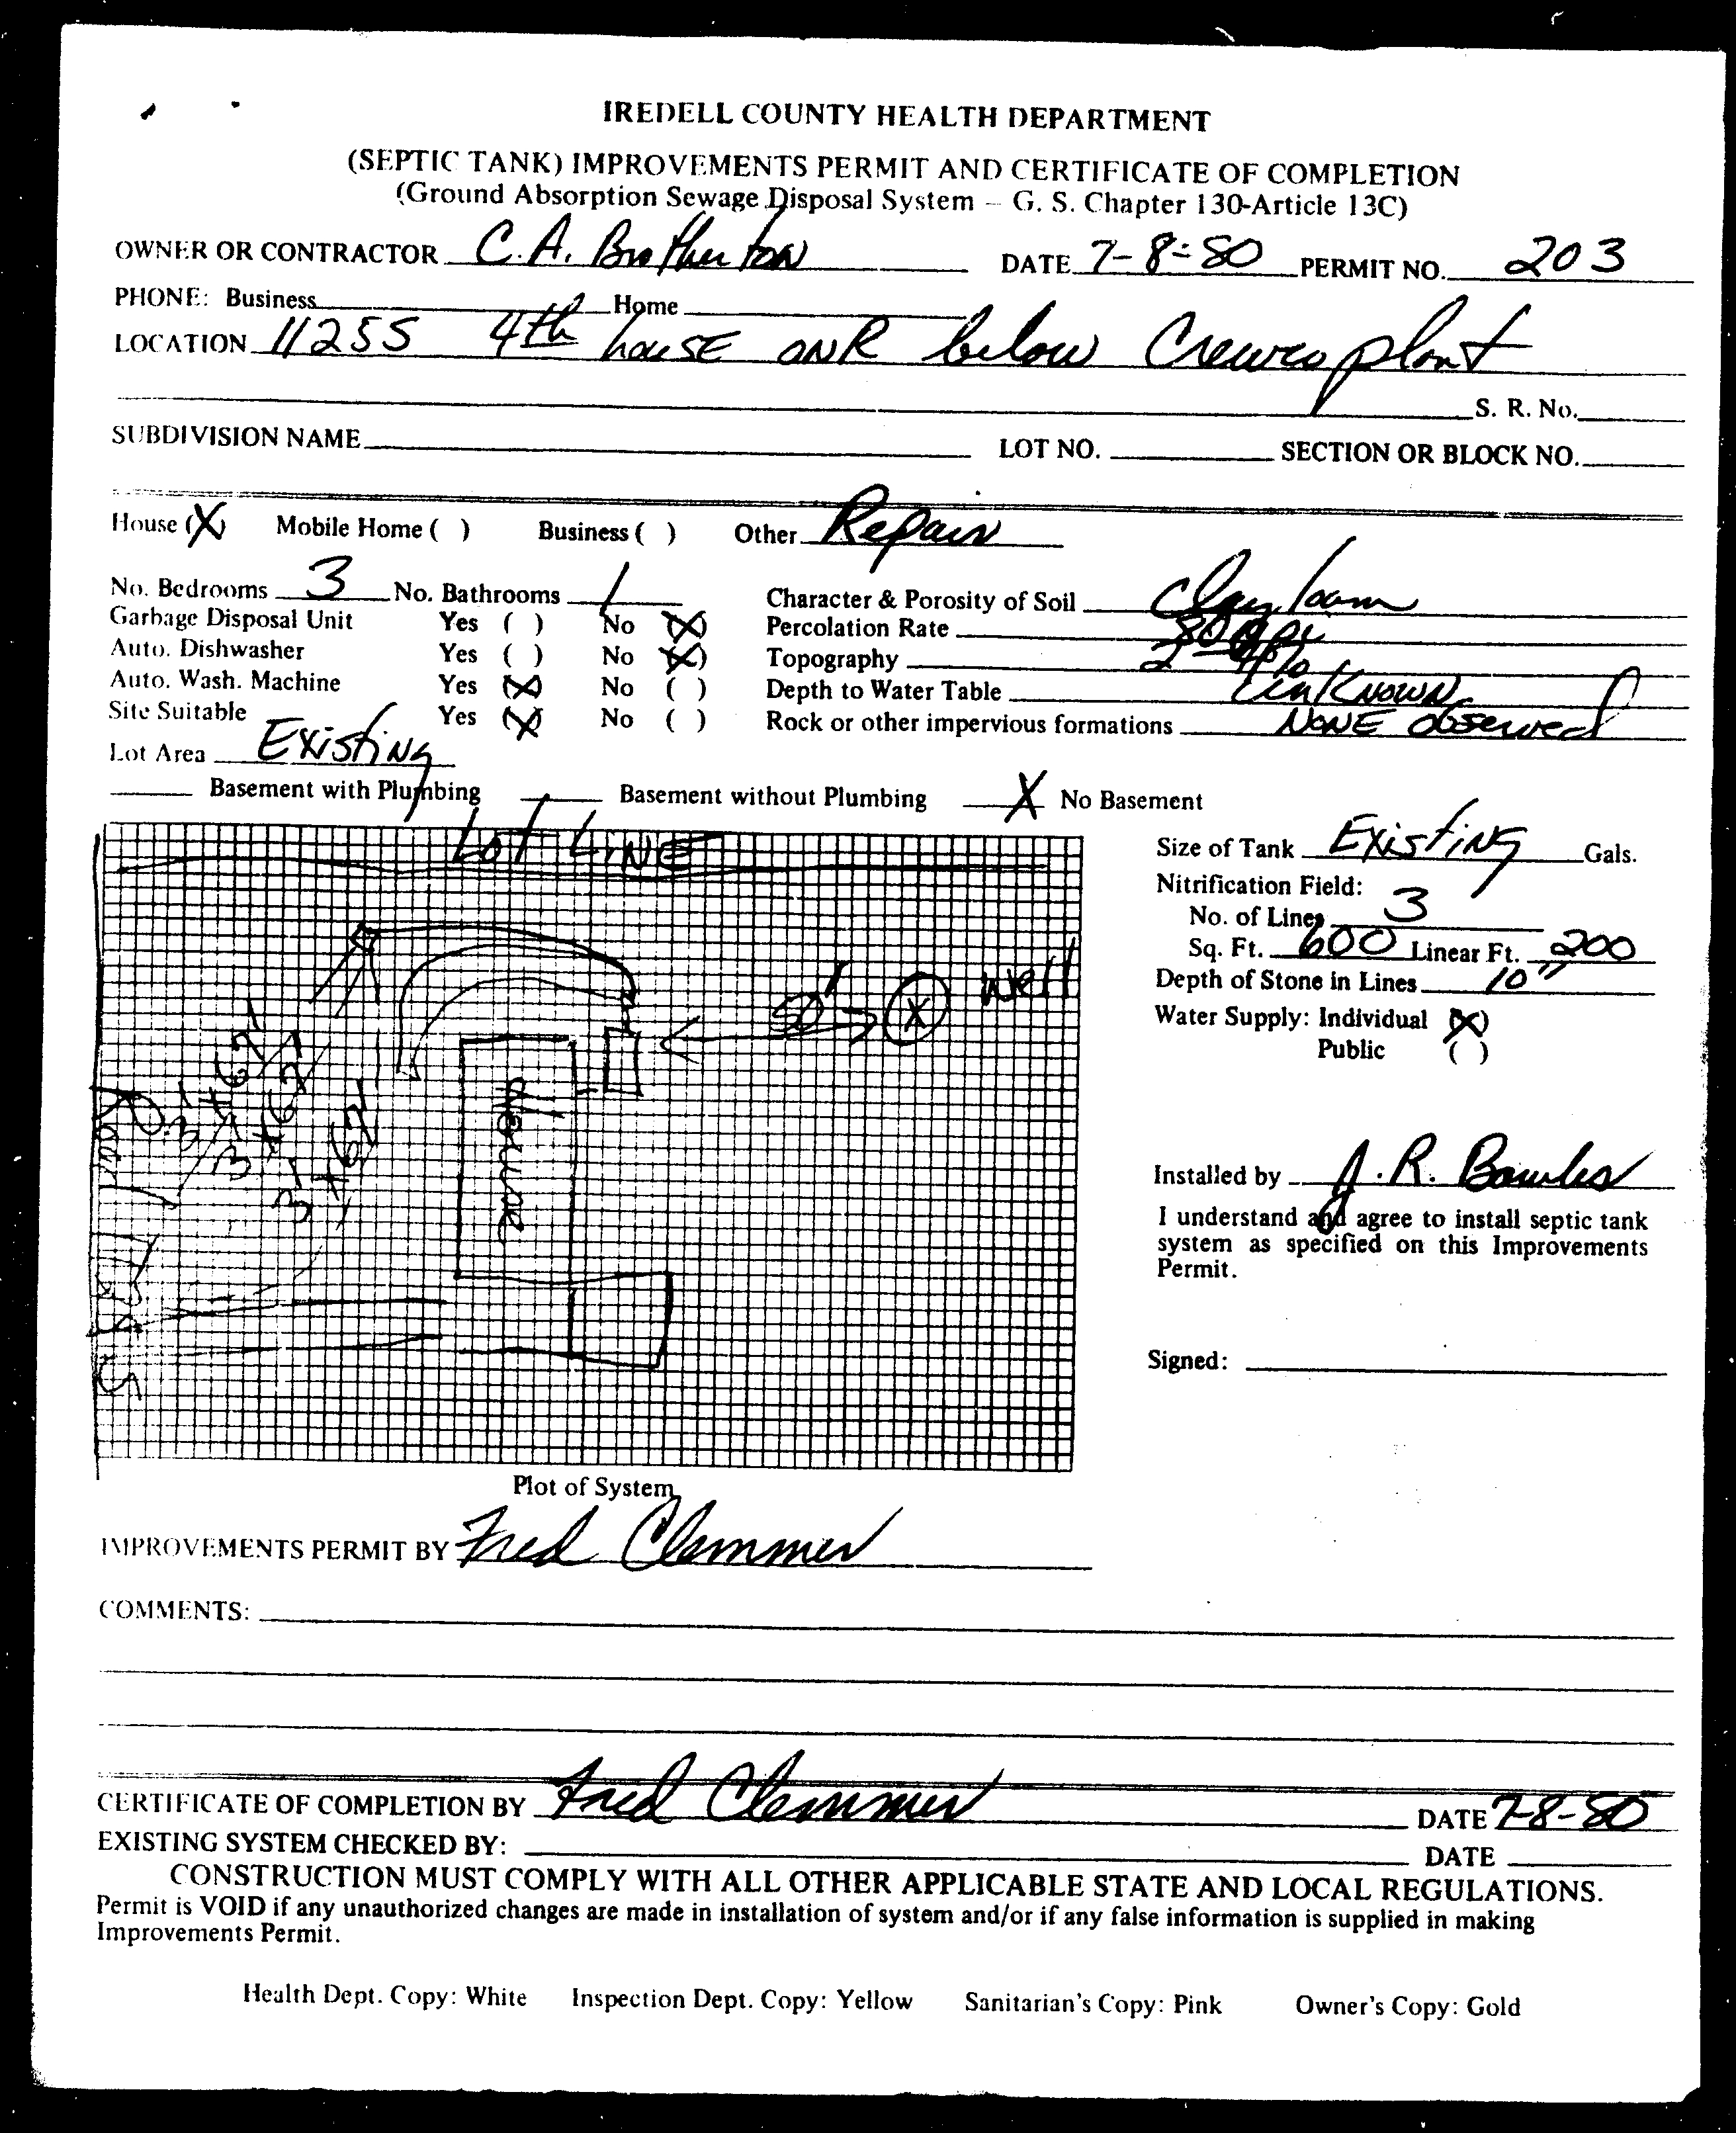 IREDELL COUNTY HEALTH DEPARTMENT
(SEPTIC TANK) IMPROVEMENTS PERMIT AND CERTIFICATE OF COMPLETION
(Ground Absorption Sewage Disposal System – G. S. Chapter 130-Article 13C)
OWNER OR CONTRACTOR C.A. Brotherton DATE 7-8-80 PERMIT NO. 203
PHONE: Business Home
LOCATION 11255 4th house ON R below Crewco plant
S. R. No.
SUBDIVISION NAME LOT NO. SECTION OR BLOCK NO.
House (X) Mobile Home ( ) Business ( ) Other Repair
No. Bedrooms 3 No. Bathrooms 1 Character & Porosity of Soil Clay loam
Garbage Disposal Unit Yes ( ) No (X) Percolation Rate
Auto. Dishwasher Yes ( ) No (X) Topography 2-4%
Auto. Wash. Machine Yes (X) No ( ) Depth to Water Table UnKNOWN
Site Suitable Yes (X) No ( ) Rock or other impervious formations NONE observed
Lot Area Existing
Basement with Plumbing Basement without Plumbing X No Basement
Lot LINE
50'
X
Well
House
3'x67'
3'x67'
3'x67'
Size of Tank Existing Gals.
Nitrification Field:
No. of Lines 3
Sq. Ft. 600 Linear Ft. 200
Depth of Stone in Lines 10"
Water Supply: Individual (X)
Public ( )
Installed by J.R. Bowles
I understand and agree to install septic tank
system as specified on this Improvements
Permit.
Signed:
Plot of System
IMPROVEMENTS PERMIT BY Fred Clemmer
COMMENTS:
CERTIFICATE OF COMPLETION BY Fred Clemmer DATE 7-8-80
EXISTING SYSTEM CHECKED BY: DATE
CONSTRUCTION MUST COMPLY WITH ALL OTHER APPLICABLE STATE AND LOCAL REGULATIONS.
Permit is VOID if any unauthorized changes are made in installation of system and/or if any false information is supplied in making
Improvements Permit.
Health Dept. Copy: White Inspection Dept. Copy: Yellow Sanitarian's Copy: Pink Owner's Copy: Gold